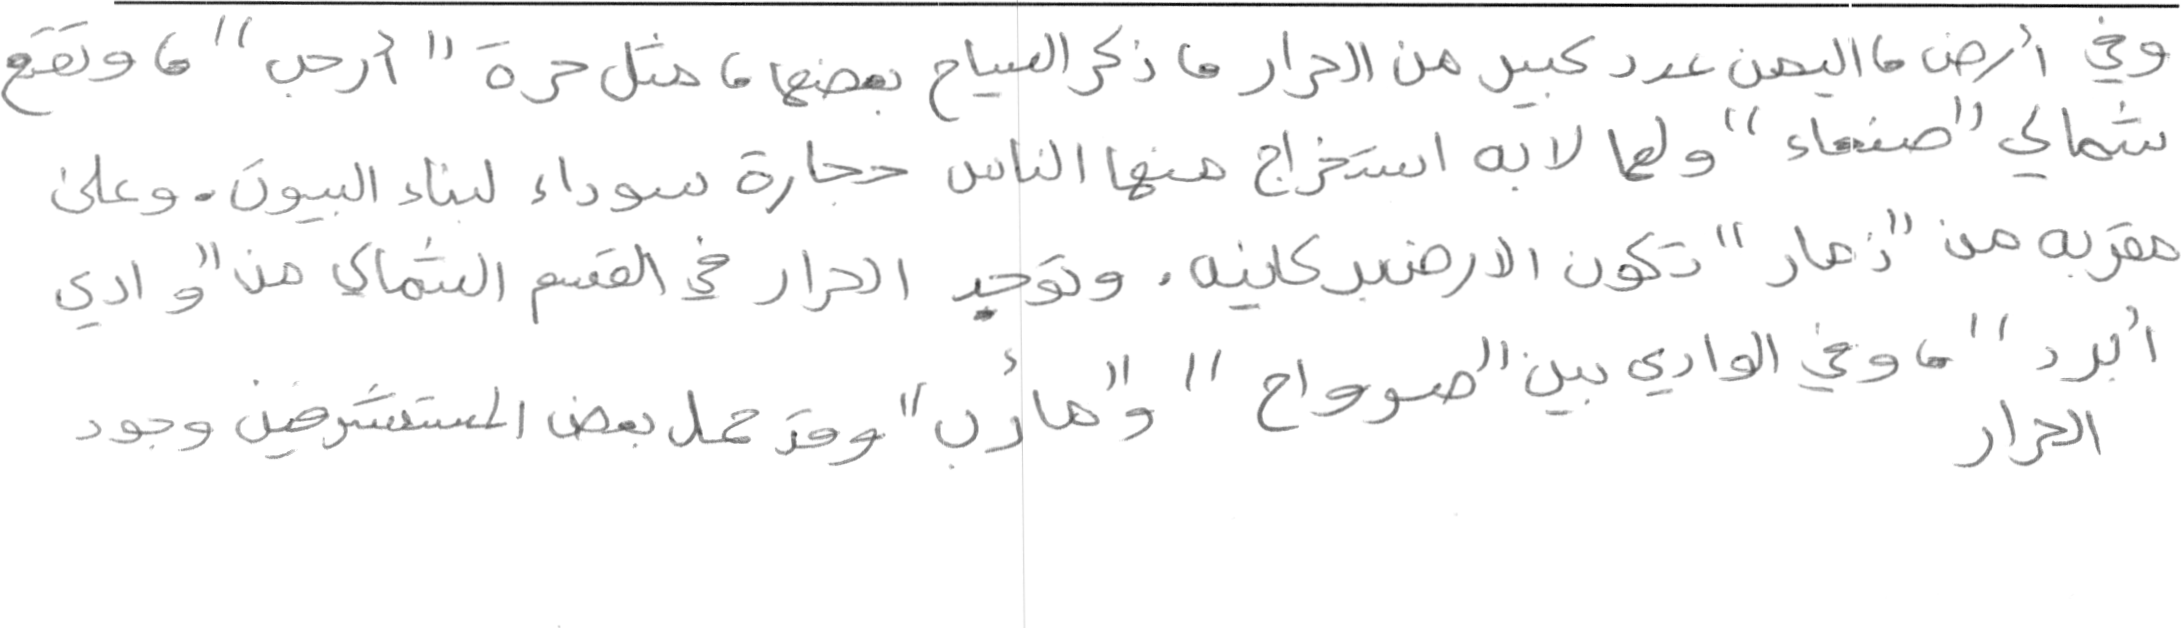 وفي أرض، اليمن عدد كبير من الحرار، ذكر السياح بعضها، مثل حرة "أرحب"، وتقع
شمالي "صنعاء" ولها لابه استخراج منها الناس حجارة سوداء لبناء البيوت. وعلى
مقربه من "ذمار" تكون الارض بركانيه. وتوجد الحرار في القسم الشمالي من "وادي
أبرد"، وفي الوادي بين "صرواح" و"مأرب" وقد حمل بعض المستشرقين وجود
الحرار